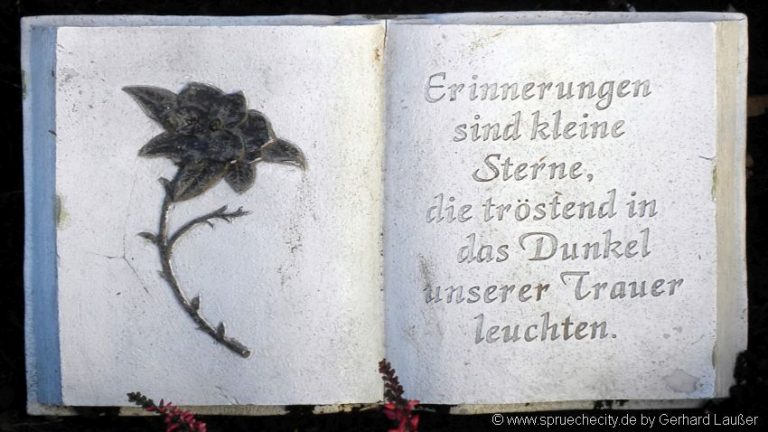 Erinnerungen
sind kleine
Sterne,
die tröstend in
das Dunkel
unserer Trauer
leuchten.
© www.spruechecity.de by Gerhard Laußer